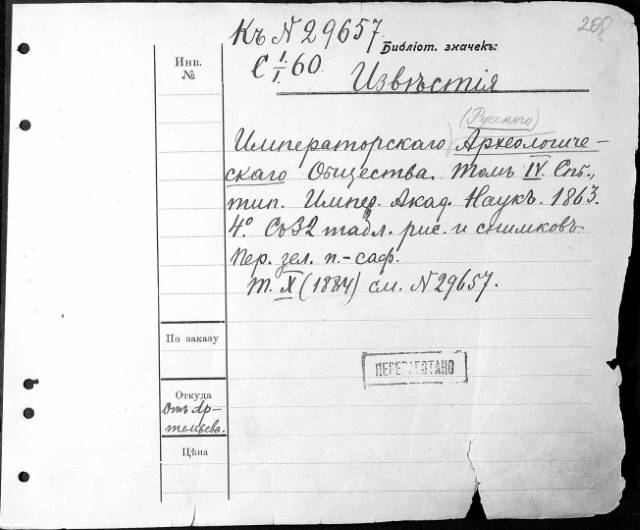 Къ N 29657
208
Библіот. значекъ:
Инв.
№
С 1/1 60.
Извѣстія
(Русскаго)
Императорскаго Археологиче-
скаго Общества. Томъ IV. Спб.,
тип. Импер. Акад. Наукъ. 1863.
4° Съ 32 табл. рис. и снимковъ.
Пер. зел. п.-саф.
Т. X (1884) см. N 29657.
По заказу
ПЕРЕРАБОТАНО
Откуда
Отъ Ар-
темьева.
Цѣна